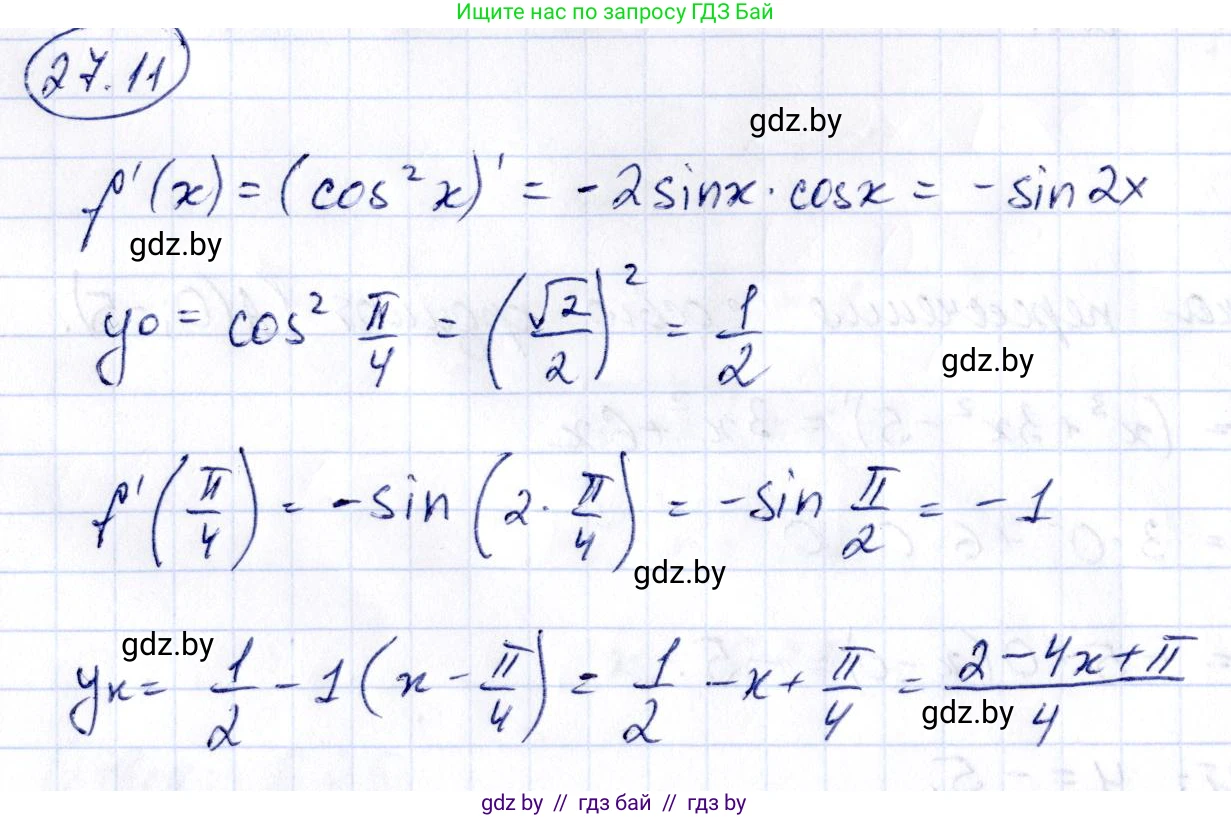 Ищите нас по запросу ГДЗ Бай
27.11
gdz.by
f'(x) = (cos²x)' = -2sinx·cosx = -sin2x
gdz.by
y₀ = cos² π/4 = (√2/2)² = 1/2
gdz.by
f'(π/4) = -sin(2·π/4) = -sin π/2 = -1
gdz.by
gdz.by
yк = 1/2 - 1(x - π/4) = 1/2 - x + π/4 = (2-4x+π)/4
gdz.by
gdz by // гдз бай // гдз by